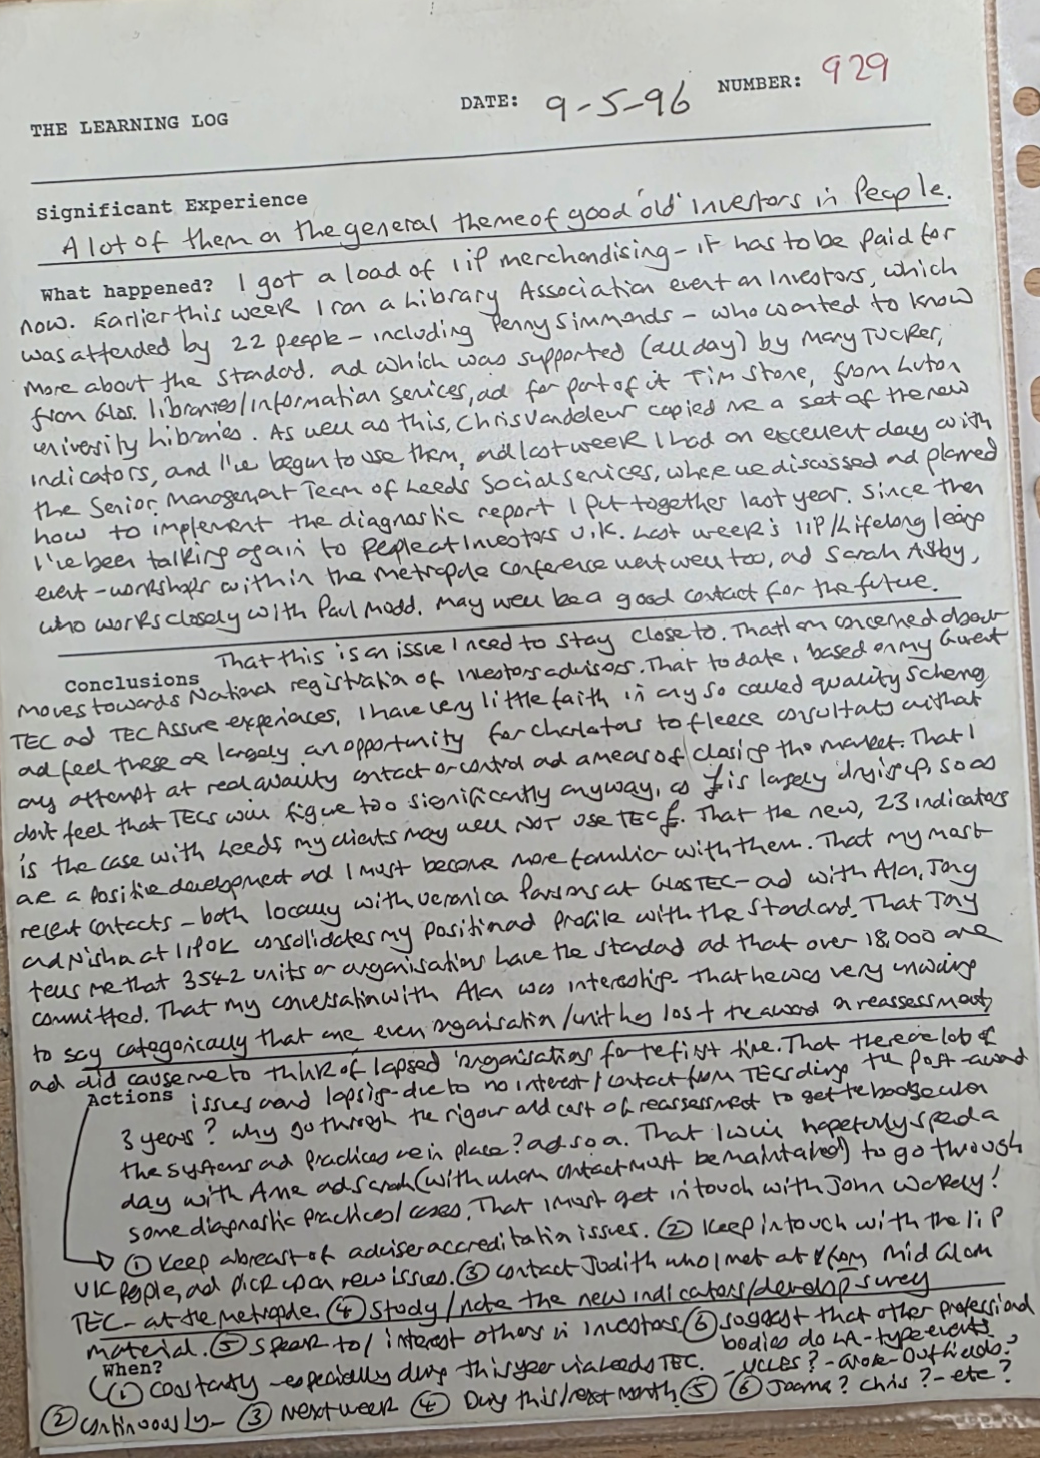 THE LEARNING LOG
DATE: 9-5-96
NUMBER: 929
Significant Experience
A lot of them on the general theme of good 'old' Investors in People.
What happened? I got a load of IIP merchandising - it has to be paid for
now. Earlier this week I ran a Library Association event on Investors, which
was attended by 22 people - including Penny Simmonds - who wanted to know
more about the standard. and which was supported (all day) by Mary Tucker,
from Glos. libraries/information services, and for part of it Tim Stone, from Luton
university Libraries. As well as this, Chris Vandeleur copied me a set of the new
indicators, and I've begun to use them, and last week I had an excellent day with
the Senior Management Team of Leeds Social Services, where we discussed and planned
how to implement the diagnostic report I put together last year. Since then
I've been talking again to People at Investors U.K. Last week's IIP/Lifelong learning
event - workshops within the Metropole conference went well too, and Sarah Ashby,
who works closely with Paul Modd. may well be a good contact for the future.
That this is an issue I need to stay close to. That I am concerned about
Conclusions
moves towards National registration of Investors advisors. That to date, based on my current
TEC and TEC Assure experiences, I have very little faith in any so called quality schemes
and feel these are largely an opportunity for charlatans to fleece consultants without
any attempt at real quality contact or control and a means of closing the market. That I
don't feel that TECs will figure too significantly anyway, as £ is largely drying up, so as
is the case with Leeds my clients may well NOT use TEC £. That the new, 23 indicators
are a positive development and I must become more familiar with them. That my most
recent contacts - both locally with Veronica Parsons at Glos TEC - and with Alan, Tony
and Nisha at IIPUK consolidates my position and profile with the Standard. That Tony
tells me that 3542 units or organisations have the standard and that over 18,000 are
committed. That my conversation with Alan was interesting. That he was very unwilling
to say categorically that one even organisation/unit has lost the award on reassessment,
and did cause me to think of lapsed organisations for the first time. That there are lots of
Actions
issues around lapsing - due to no interest/contact from TECs during the post-award
3 years? Why go through the rigour and cost of reassessment to get the badge when
the systems and practices are in place? and so on. That I will hopefully spend a
day with Anne and Sarah (with whom contact must be maintained) to go through
some diagnostic practices/cases. That I must get in touch with John Wakely!
① Keep abreast of adviser accreditation issues. ② Keep in touch with the IIP
UK people, and pick up on new issues. ③ Contact Judith who I met at from Mid Glam
TEC - at the Metropole. ④ Study/note the new indicators/develop survey
material. ⑤ Speak to/interest others in Investors. ⑥ Suggest that other professional
bodies do LA-type events.
When?
① Constantly - especially during this year via Leeds TEC. - UCLES?
② Continuously - ③ Next week ④ During this/next month ⑤ ⑥ Joanna? Chris? - etc?